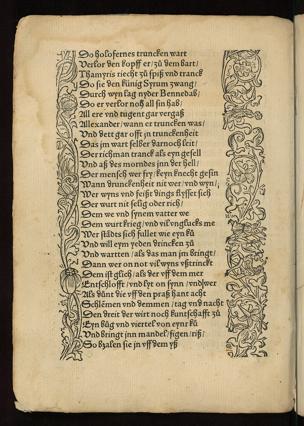 Do holofernes truncken wart
Verlor den kopff er/zů dem bart/
Thamyris riecht zů spiß vnd tranck
Do sie den künig Syrum zwang/
Durch wyn lag nyder Bennedab/
Do er verlor noß all sin hab/
All ere vnd tugent gar vergaß
Alexander/wann er truncken was/
Vnd dett gar offt jn trunckenheit
Das jm wart selber darnoch leit/
Der richman tranck als eyn gesell
Vnd aß des morndes jnn der hell/
Der mensch wer fry/keyn knecht gesin
Wann drunckenheit nit wer/vnd wyn/
Wer wyns vnd feißt dings flysset sich
Der wurt nit selig oder rich/
Dem we vnd synem vatter we
Dem wurt krieg/vnd vil vnglucks me
Wer stådts sich füllet wie eyn ků
Vnd will eym yeden drincken zů
Vnd wartten/als das man jm bringt/
Dann wer on not vil wyns vßtrinckt
Dem ist glich/als der vff dem mer
Entschlofft/vnd lyt on synn/vnd wer
Als důnt die vff den praß hant acht
Schlemen vnd demmen/tag vnd nacht
Den dreit der wirt noch kuntschafft zů
Eyn bůg vnd viertel von eynr ků
Vnd bringt jnn mandel/figen/riß/
So bzalen sie jn vff dem yß